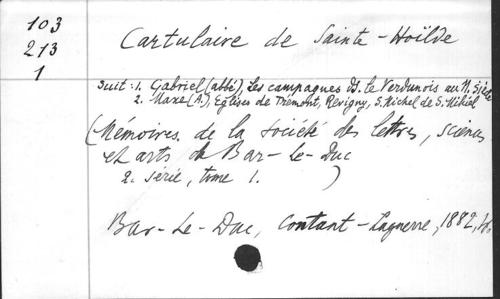 103
213
1
Cartulaire de Sainte-Hoïlde
Suit: 1. Gabriel (abbé), Les campagnes ds. le Verdunois au M. Siècle
2. Maxe (A.), Eglises de Trémont, Revigny, S. Michel de S. Mihiel
(Mémoires de la Société des lettres, sciences
et arts de Bar-le-Duc
2. Série, tome 1. )
Bar-Le-Duc, Contant-Laguerre, 1882,